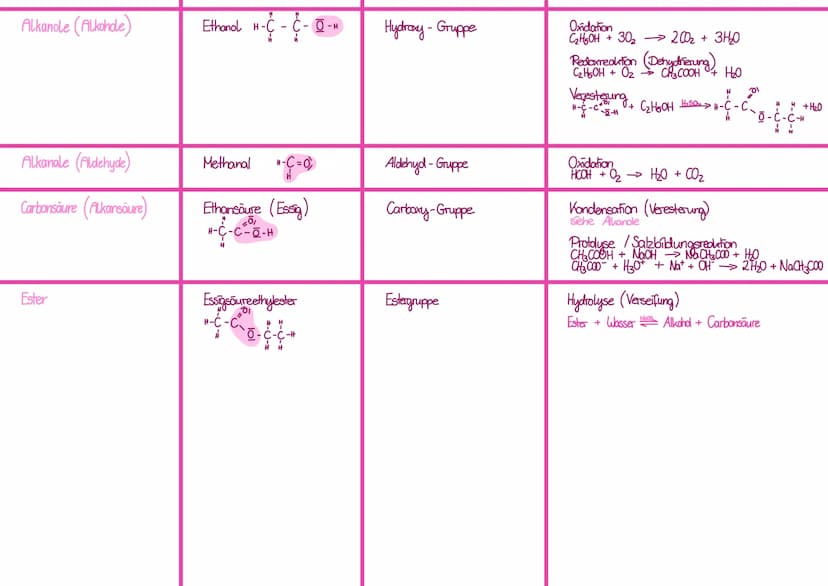 Alkanole (Alkohole)
Ethanol
H-C-C-O-H
Hydroxy-Gruppe
Oxidation
C₂H₅OH + 3O₂ → 2CO₂ + 3H₂O
Redoxreaktion (Dehydrierung)
C₂H₅OH + O₂ → CH₃COOH + H₂O
Veresterung
+ C₂H₅OH H₂SO₄ → + H₂O
Alkanale (Aldehyde)
Methanal
H-C=O
H
Aldehyd-Gruppe
Oxidation
HCOH + O₂ → H₂O + CO₂
Carbonsäure (Alkansäure)
Ethansäure (Essig)
H-C-C-O-H
Carboxy-Gruppe
Kondensation (Veresterung)
siehe Alkanole
Protolyse / Salzbildungsreaktion
CH₃COOH + NaOH → NaCH₃COO + H₂O
CH₃COO⁻ + H₃O⁺ + Na⁺ + OH⁻ → 2H₂O + NaCH₃COO
Ester
Essigsäureethylester
H-C-C
O-C-C-H
Estergruppe
Hydrolyse (Verseifung)
Ester + Wasser ⇌ Alkohol + Carbonsäure